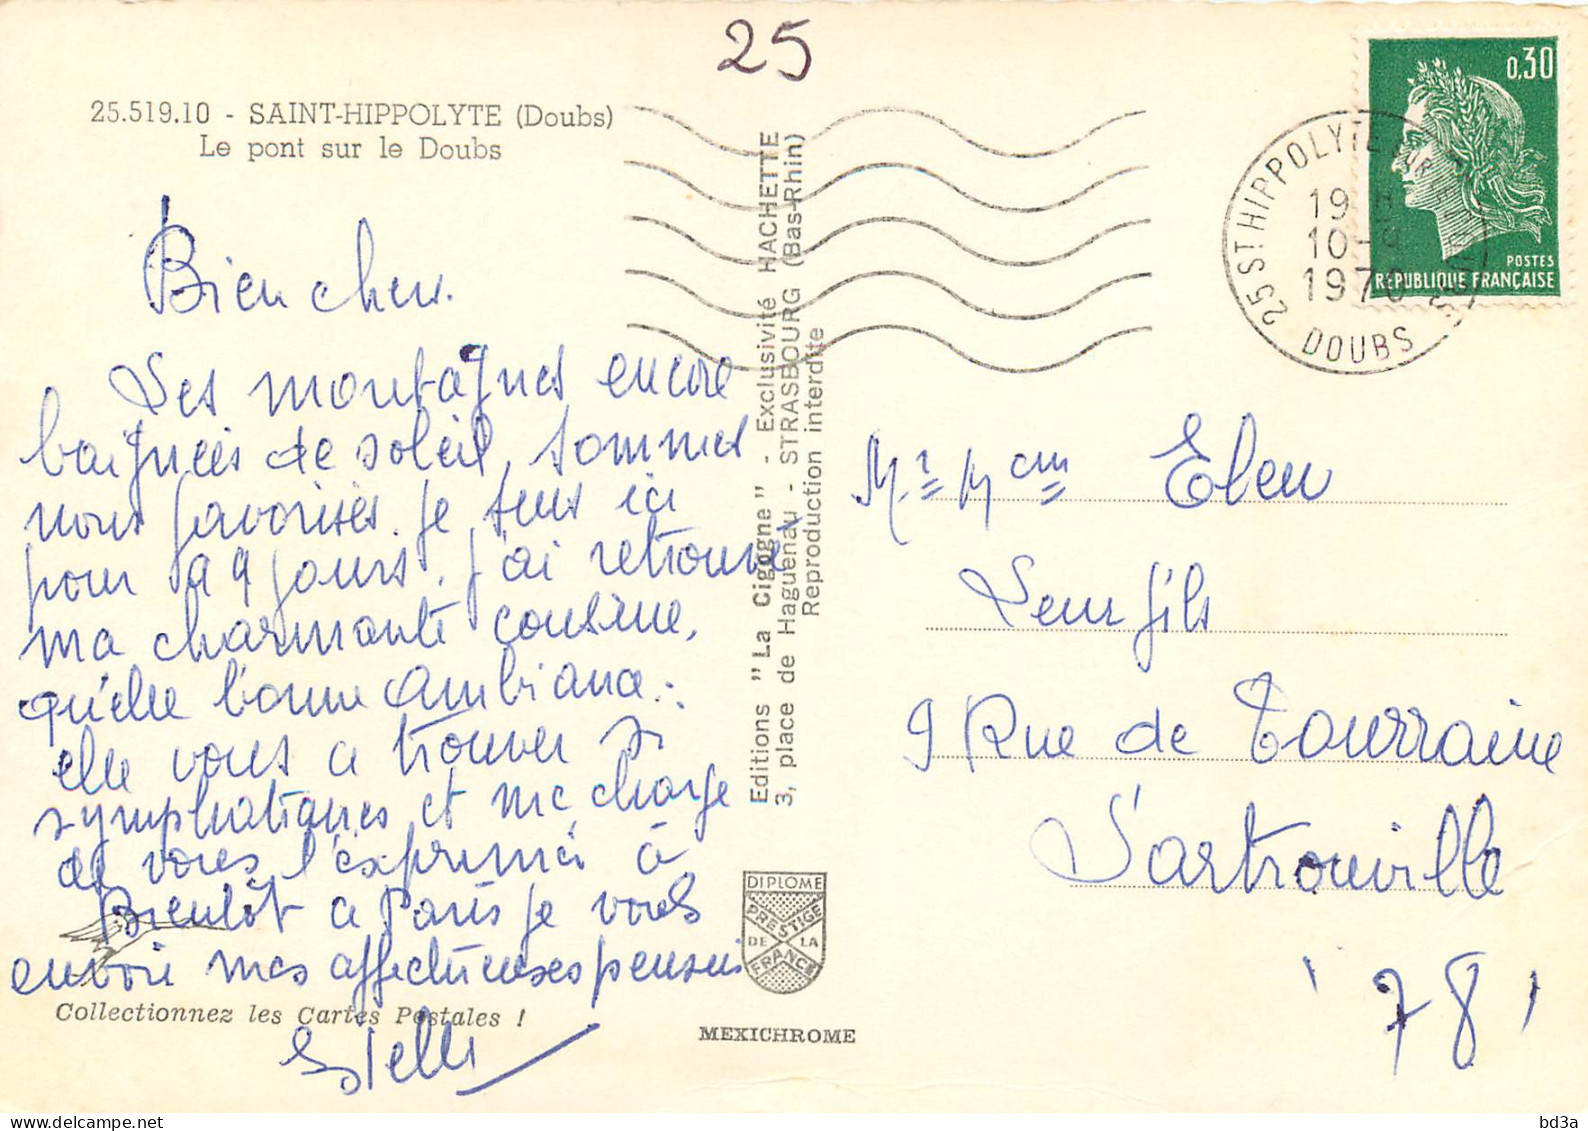 25
25.519.10 - SAINT-HIPPOLYTE (Doubs)
Le pont sur le Doubs
Bien chers.
Les montagnes encore
baignées de soleil, sommes
nous favorisés. Je suis ici
pour 9 jours, j'ai retrouvé
ma charmante cousine,
qu'elle bonne ambiance.
elle vous a trouver si
symphatiques et me charge
de vous l'exprimer à
Bientôt a Paris je vous
envoie mes affectueuses pensées
Estelle
Collectionnez les Cartes Postales !
Editions "La Cigogne" - Exclusivité HACHETTE
3, place de Haguenau - STRASBOURG (Bas-Rhin)
Reproduction interdite
DIPLOME
PRESTIGE
DE LA
FRANCE
MEXICHROME
0,30
POSTES
REPUBLIQUE FRANÇAISE
25 ST HIPPOLYTE SUR
19 H
10-9
1970
DOUBS
Mr Mme Elen
Leur fils
9 Rue de Tourraine
Sartrouville
78